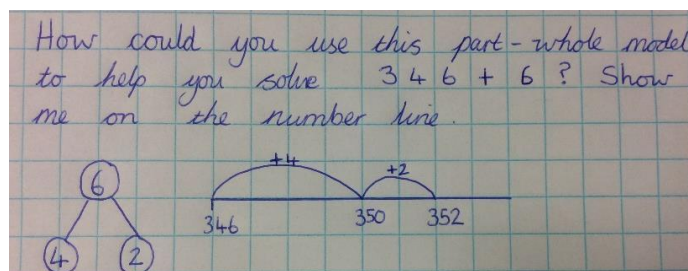 How could you use this part-whole model
to help you solve 346 + 6? Show
me on the number line.
6
4 2
+4 +2
346 350 352